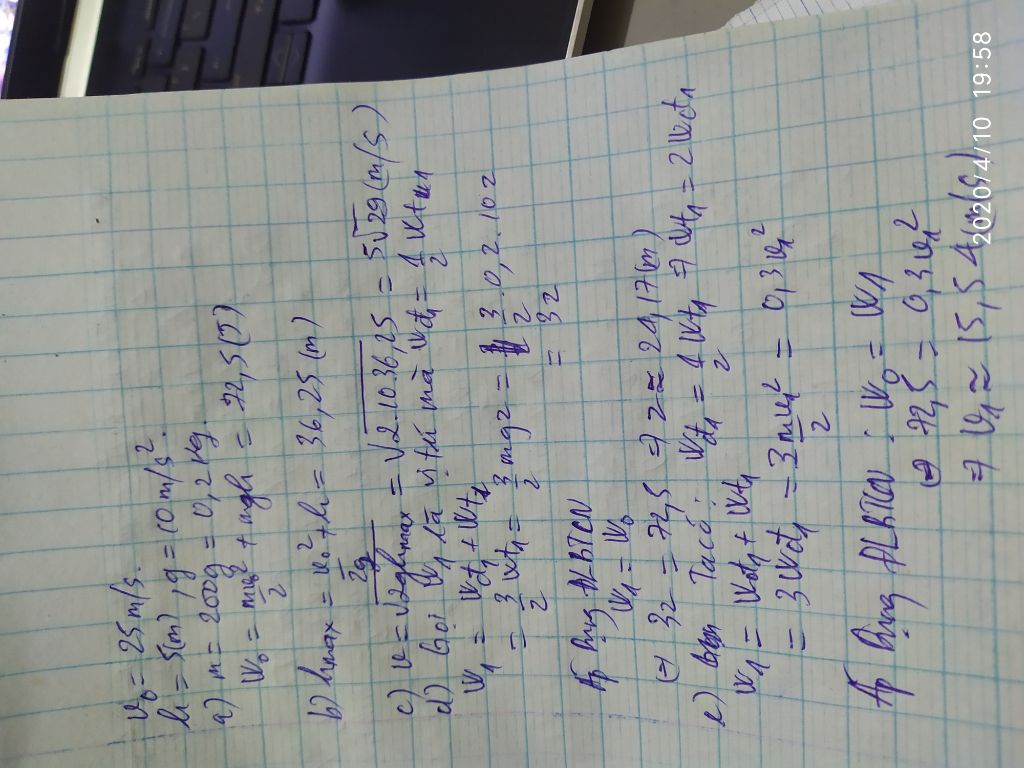 v₀ = 25 m/s.
h = 5(m) , g = 10 m/s².
a) m = 200g = 0,2 kg.
W₀ = mv₀²/2 + mgh = 72,5(J)
b) hmax = v₀²/2g + h = 36,25(m)
c) v = √2ghmax = √2.10.36,25 = 5√29(m/s)
d) Gọi W1 là vị trí mà Wđ1 = 1/2 Wt1
W1 = Wđ1 + Wt1
= 3/2 Wt1 = 3/2 mgz = 3/2 . 0,2.10z
= 3z
Áp dụng ĐLBTCN
W1 = W₀
(=) 3z = 72,5 => z ≈ 24,17(m)
e) Ta có : Wđ1 = 1/2 Wt1 => Wt1 = 2Wđ1
W1 = Wđ1 + Wt1
= 3Wđ1 = 3mv1²/2 = 0,3v1²
Áp dụng ĐLBTCN : W₀ = W1
(=) 72,5 = 0,3v1²
=> v1 ≈ 15,54(m/s)
2020/4/10 19:58